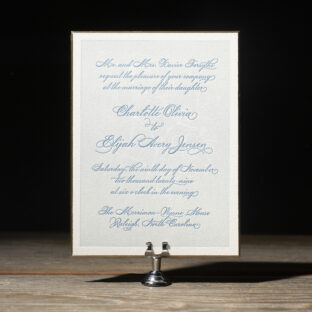 Mr. and Mrs. Xavier Forsythe
request the pleasure of your company
at the marriage of their daughter
Charlotte Olivia
to
Elijah Avery Jensen
Saturday, the ninth day of November
two thousand twenty-nine
at six o'clock in the evening
The Merrimon-Wynne House
Raleigh, North Carolina